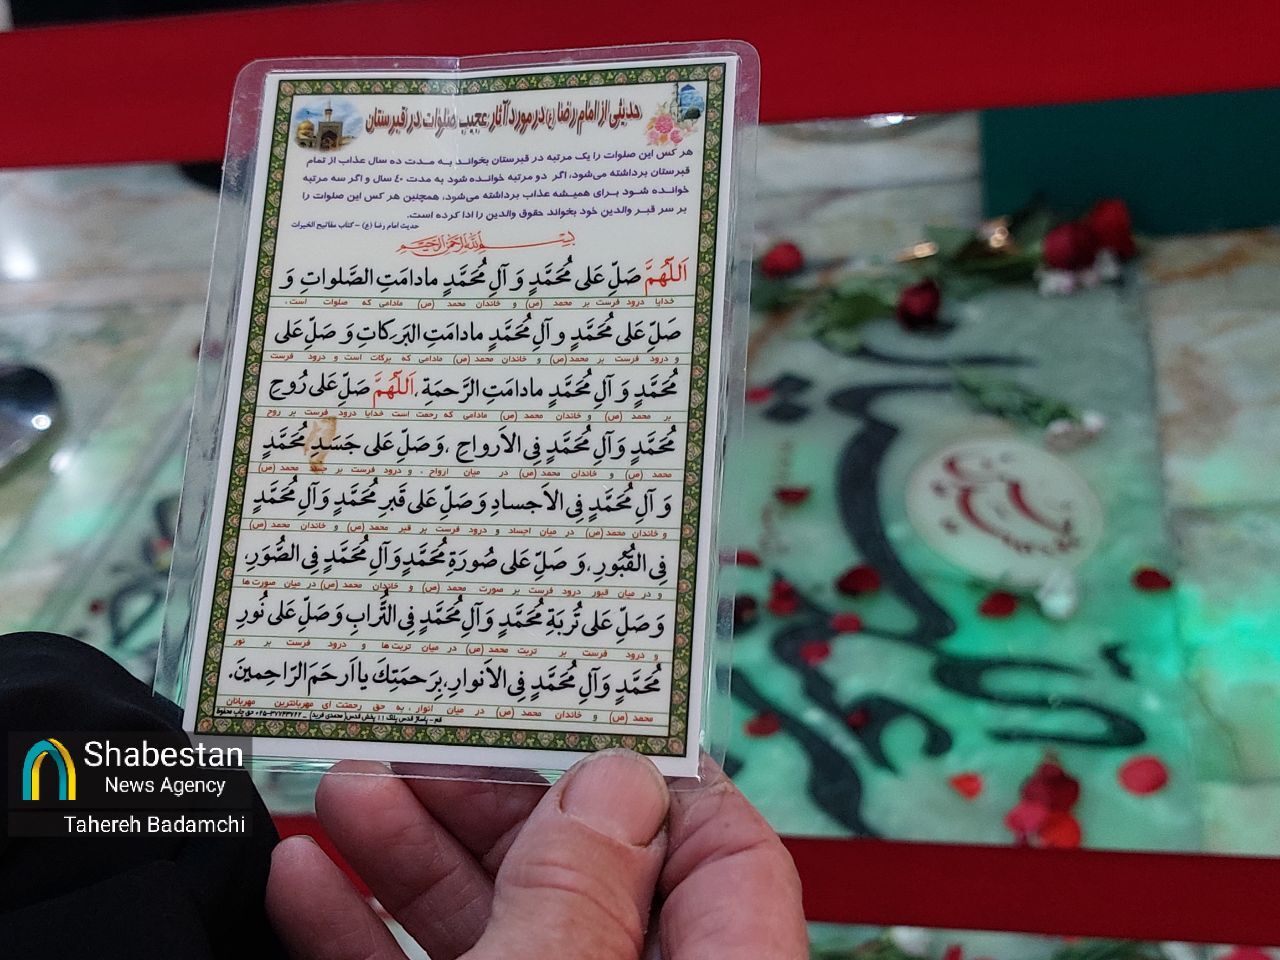 حدیثی از امام رضا (ع) در مورد آثار عجیب صلوات در قبرستان
هر کس این صلوات را یک مرتبه در قبرستان بخواند به مدت ده سال عذاب از تمام
قبرستان برداشته می‌شود، اگر دو مرتبه خوانده شود به مدت ٤٠ سال و اگر سه مرتبه
خوانده شود برای همیشه عذاب برداشته می‌شود، همچنین هر کس این صلوات را
بر سر قبر والدین خود بخواند حقوق والدین را ادا کرده است.
حدیث امام رضا (ع) – کتاب مفاتیح الخیرات
بسم الله الرحمن الرحیم
اَللّهُمَّ صَلِّ عَلی مُحَمَّدٍ وَ آلِ مُحَمَّدٍ مادامَتِ الصَّلواتِ وَ
خدایا درود فرست بر محمد (ص) و خاندان محمد (ص) مادامی که صلوات است،
صَلِّ عَلی مُحَمَّدٍ و آلِ مُحَمَّدٍ مادامَتِ البَرَکاتِ وَ صَلِّ عَلی
و درود فرست بر محمد (ص) و خاندان محمد (ص) مادامی که برکات است و درود فرست
مُحَمَّدٍ وَ آلِ مُحَمَّدٍ مادامَتِ الرَّحمَةِ ،اَللّهُمَّ صَلِّ عَلی رُوحِ
بر محمد (ص) و خاندان محمد (ص) مادامی که رحمت است خدایا درود فرست بر روح
مُحَمَّدٍ وَآلِ مُحَمَّدٍ فِی الاَرواحِ ،وَصَلِّ عَلی جَسَدِ مُحَمَّدٍ
محمد (ص) و خاندان محمد (ص) در میان ارواح ، و درود فرست بر جسد محمد (ص)
وَ آلِ مُحَمَّدٍ فِی الاَجسادِ وَ صَلِّ عَلی قَبرِ مُحَمَّدٍ وَآلِ مُحَمَّدٍ
و خاندان محمد (ص) در میان اجساد و درود فرست بر قبر محمد (ص) و خاندان محمد (ص)
فِی القُبُورِ ،وَ صَلِّ عَلی صُورَةِ مُحَمَّدٍ وَآلِ مُحَمَّدٍ فِی الصُّوَرِ،
و در میان قبور درود فرست بر صورت محمد (ص) و خاندان محمد (ص) در میان صورت ها
وَ صَلِّ عَلی تُربَةِ مُحَمَّدٍ وَآلِ مُحَمَّدٍ فِی التُّرابِ وَصَلِّ عَلی نُورِ
و درود فرست بر تربت محمد (ص) در میان تربت‌ها و درود فرست بر نور
مُحَمَّدٍ وَآلِ مُحَمَّدٍ فِی الاَنوارِ، بِرَحمَتِكَ یا اَرحَمَ الرّاحِمینَ.
محمد (ص) و خاندان محمد (ص) در میان انوار ، به حق رحمتت ای مهربانترین مهربانان
Shabestan
News Agency
Tahereh Badamchi